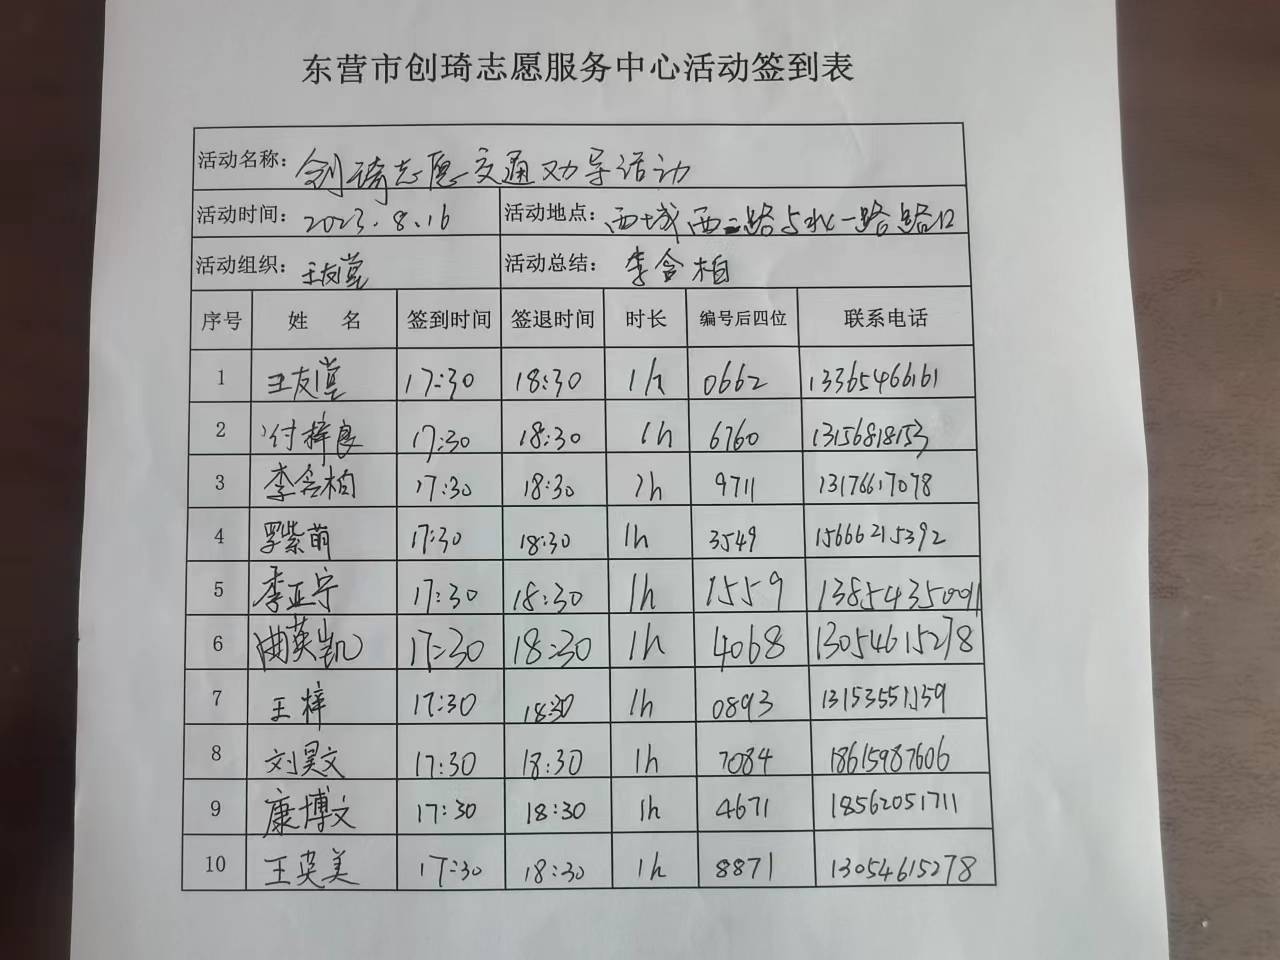 东营市创琦志愿服务中心活动签到表
活动名称: 创琦志愿交通劝导活动
活动时间: 2023.8.16 活动地点: 西城西二路与北一路路口
活动组织: 王友堂 活动总结: 李含柏
序号 姓名 签到时间 签退时间 时长 编号后四位 联系电话
1 王友堂 17:30 18:30 1h 0662 13365466161
2 付梓良 17:30 18:30 1h 6760 13156818153
3 李含柏 17:30 18:30 1h 9711 13176617078
4 罗紫萌 17:30 18:30 1h 3549 15666215392
5 李亚宁 17:30 18:30 1h 1559 13854350091
6 曲英凯 17:30 18:30 1h 4068 13054615278
7 王梓 17:30 18:30 1h 0893 13153551159
8 刘昊文 17:30 18:30 1h 7084 18615987606
9 康博文 17:30 18:30 1h 4671 18562051711
10 王英美 17:30 18:30 1h 8871 13054615278